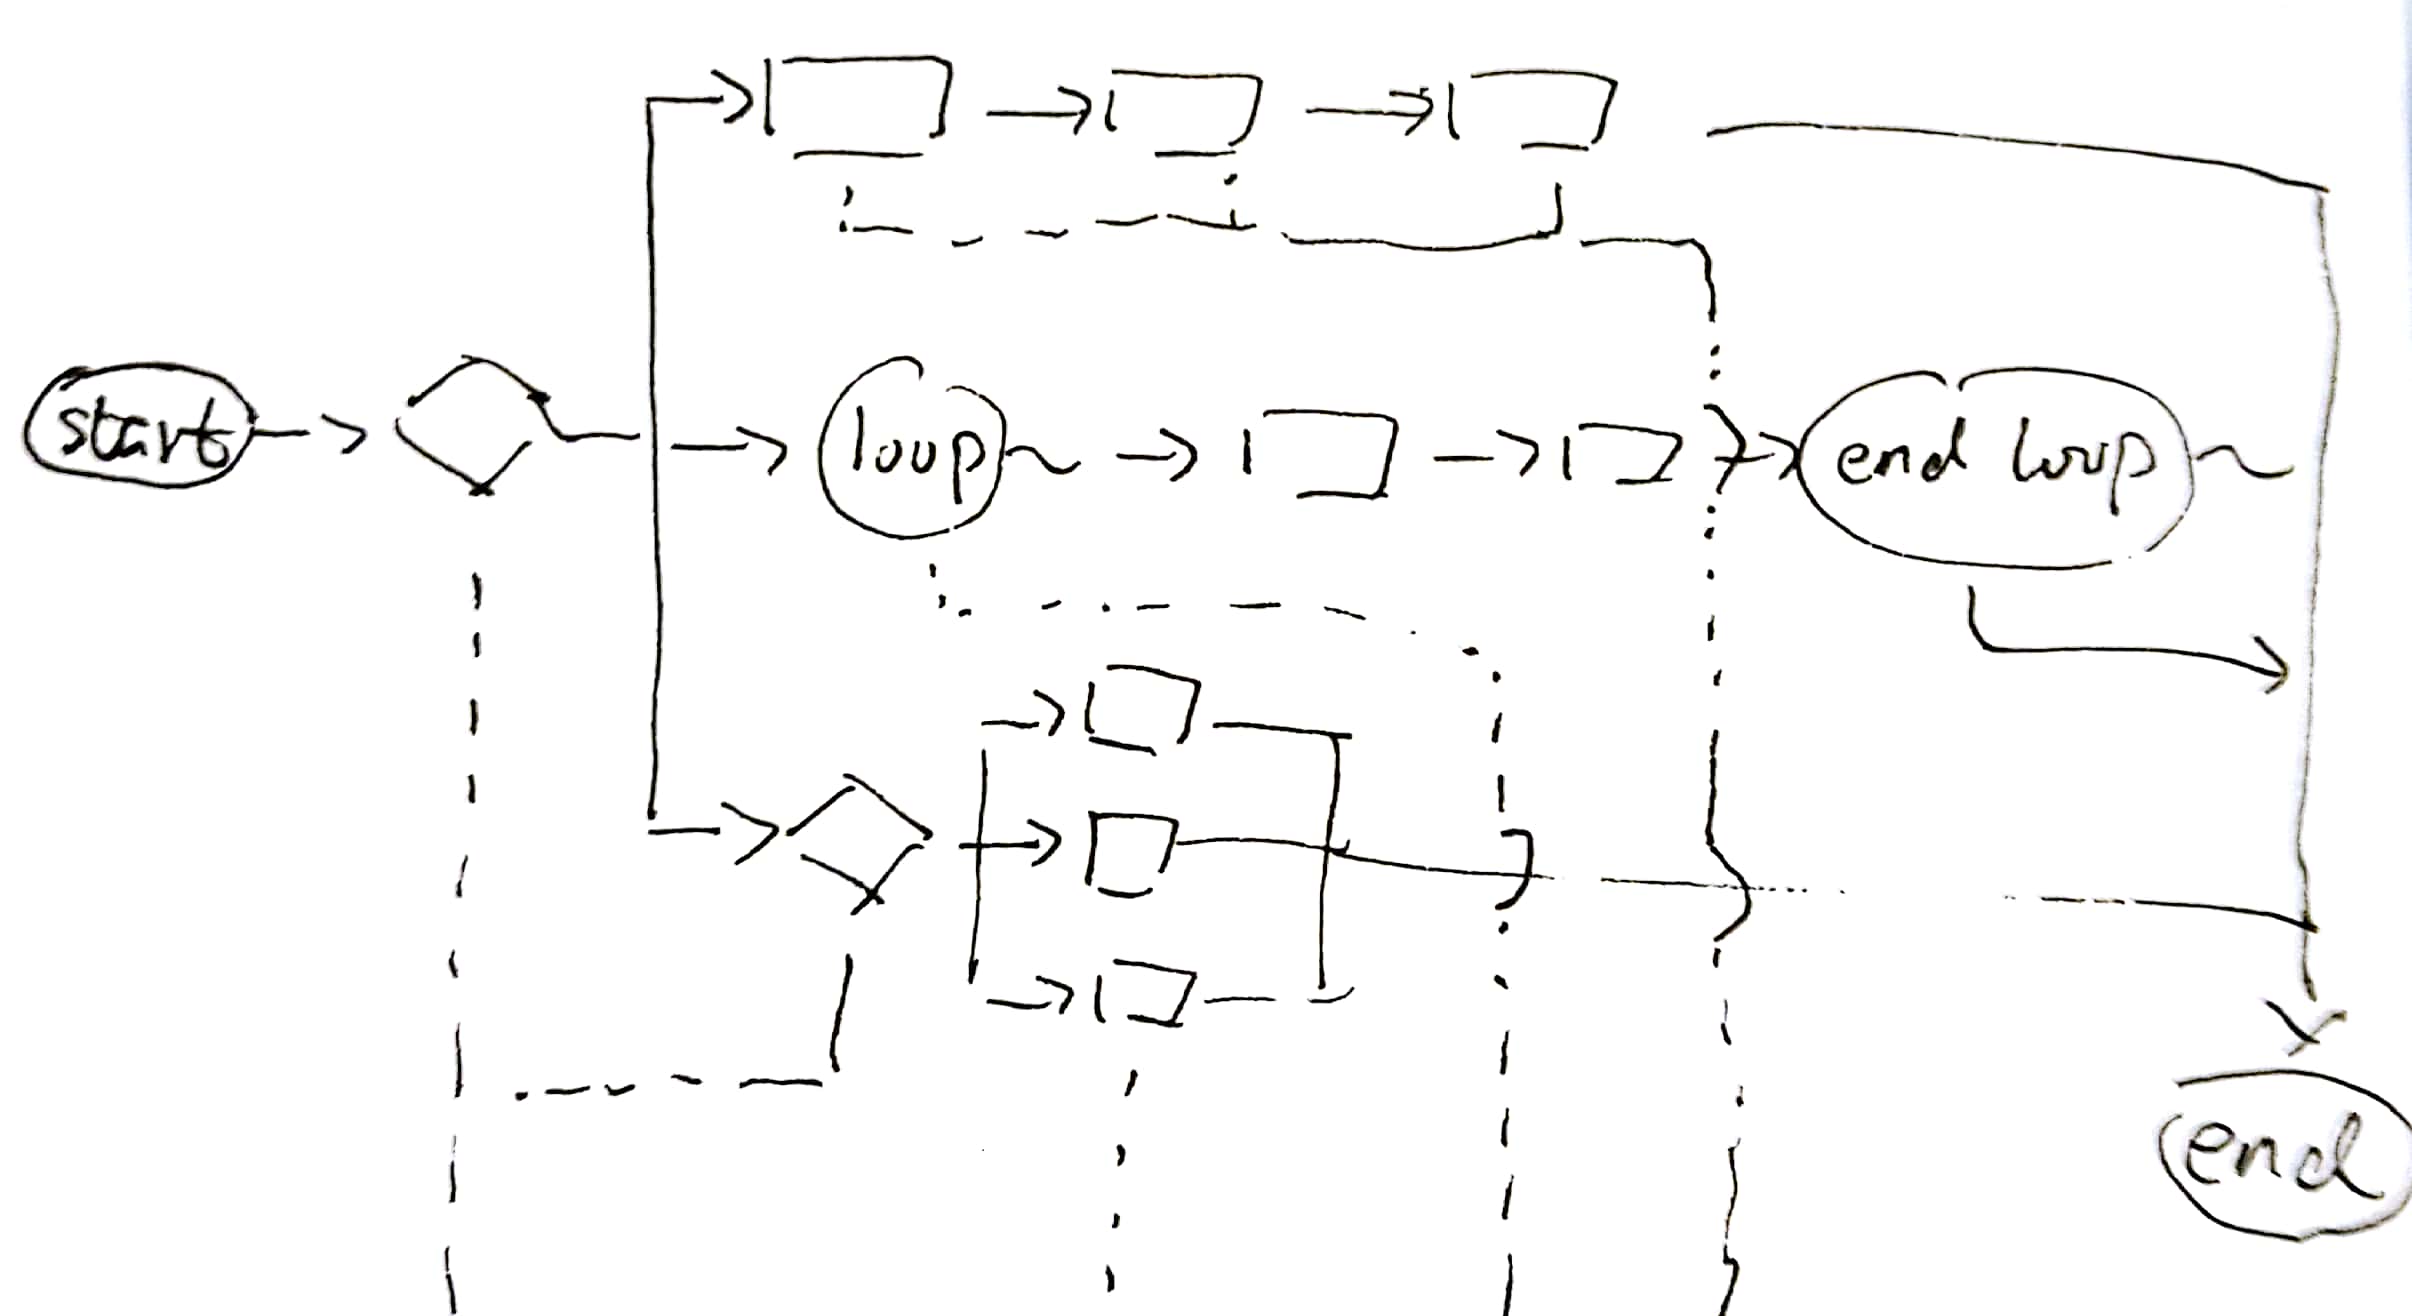 start
loop
end loop
end